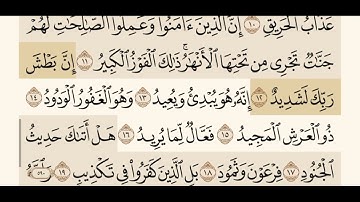 عَذَابُ الْحَرِيقِ ١٠ إِنَّ الَّذِينَ ءَامَنُوا وَعَمِلُوا الصَّالِحَاتِ لَهُمْ
جَنَّتٌ تَجْرِى مِن تَحْتِهَا الْأَنْهَرُ ذَلِكَ الْفَوْزُ الْكَبِيرُ ١١ إِنَّ بَطْشَ
رَبِّكَ لَشَدِيدٌ ١٢ إِنَّهُ هُوَ يُبْدِئُ وَيُعِيدُ ١٣ وَهُوَ الْغَفُورُ الْوَدُودُ ١٤
ذُو الْعَرْشِ الْمَجِيدُ ١٥ فَعَّالٌ لِّمَا يُرِيدُ ١٦ هَلْ أَتَىٰكَ حَدِيثُ
الْجُنُودِ ١٧ فِرْعَوْنَ وَثَمُودَ ١٨ بَلِ الَّذِينَ كَفَرُوا فِى تَكْذِيبٍ ١٩ وَاللَّهُ